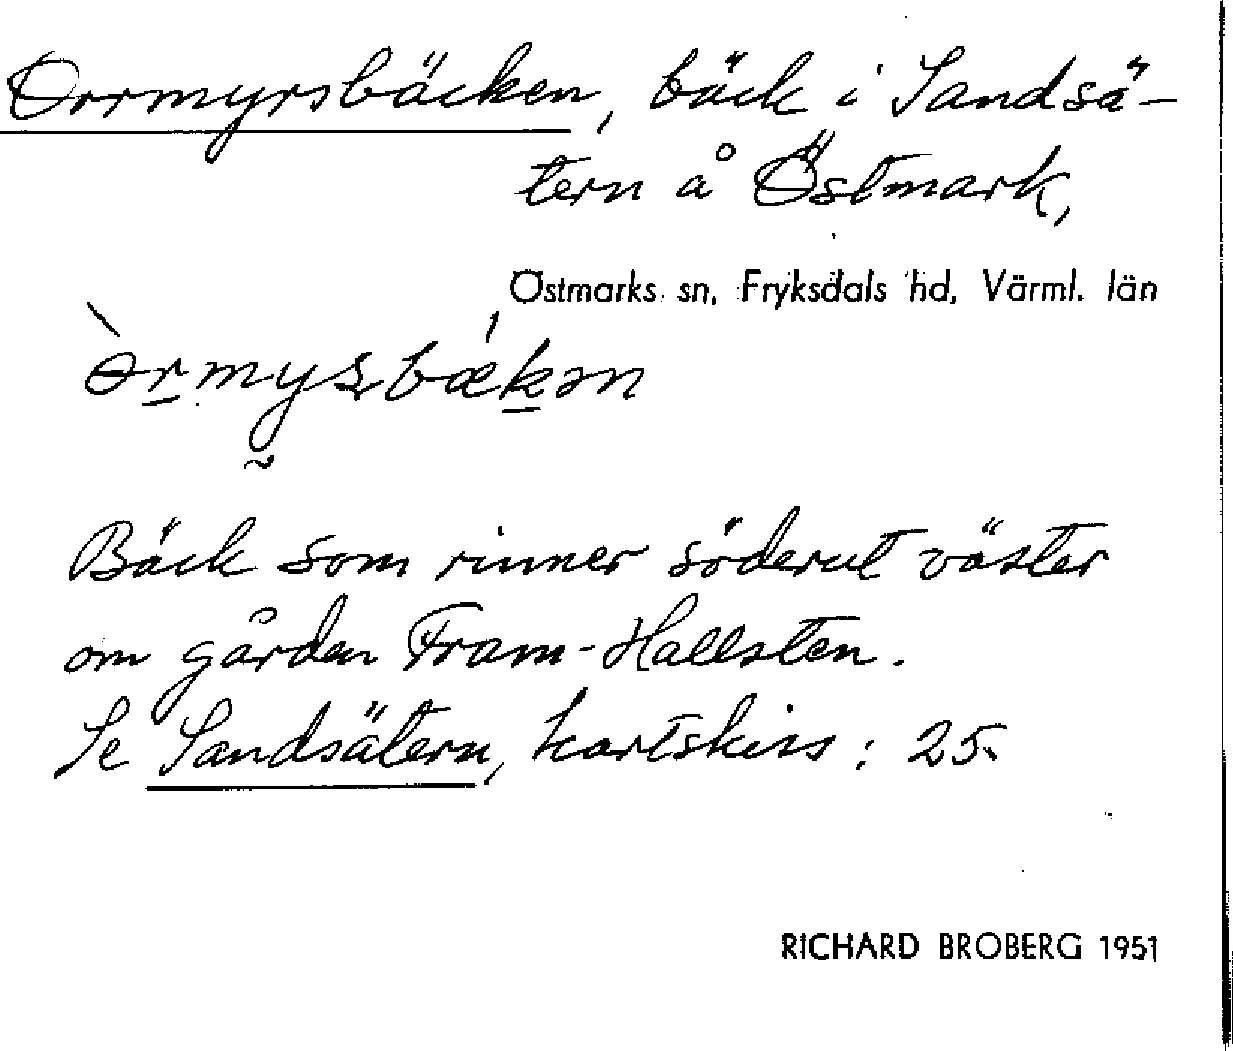 Orrmyrsbäcken, bäck i Sandsä-
tern å Östmark,
Östmarks sn, Fryksdals hd, Värml. län
Bäck som rinner söderut väster
om gården Fram-Hallsten.
Se Sandsätern, kartskiss: 25.
RICHARD BROBERG 1951